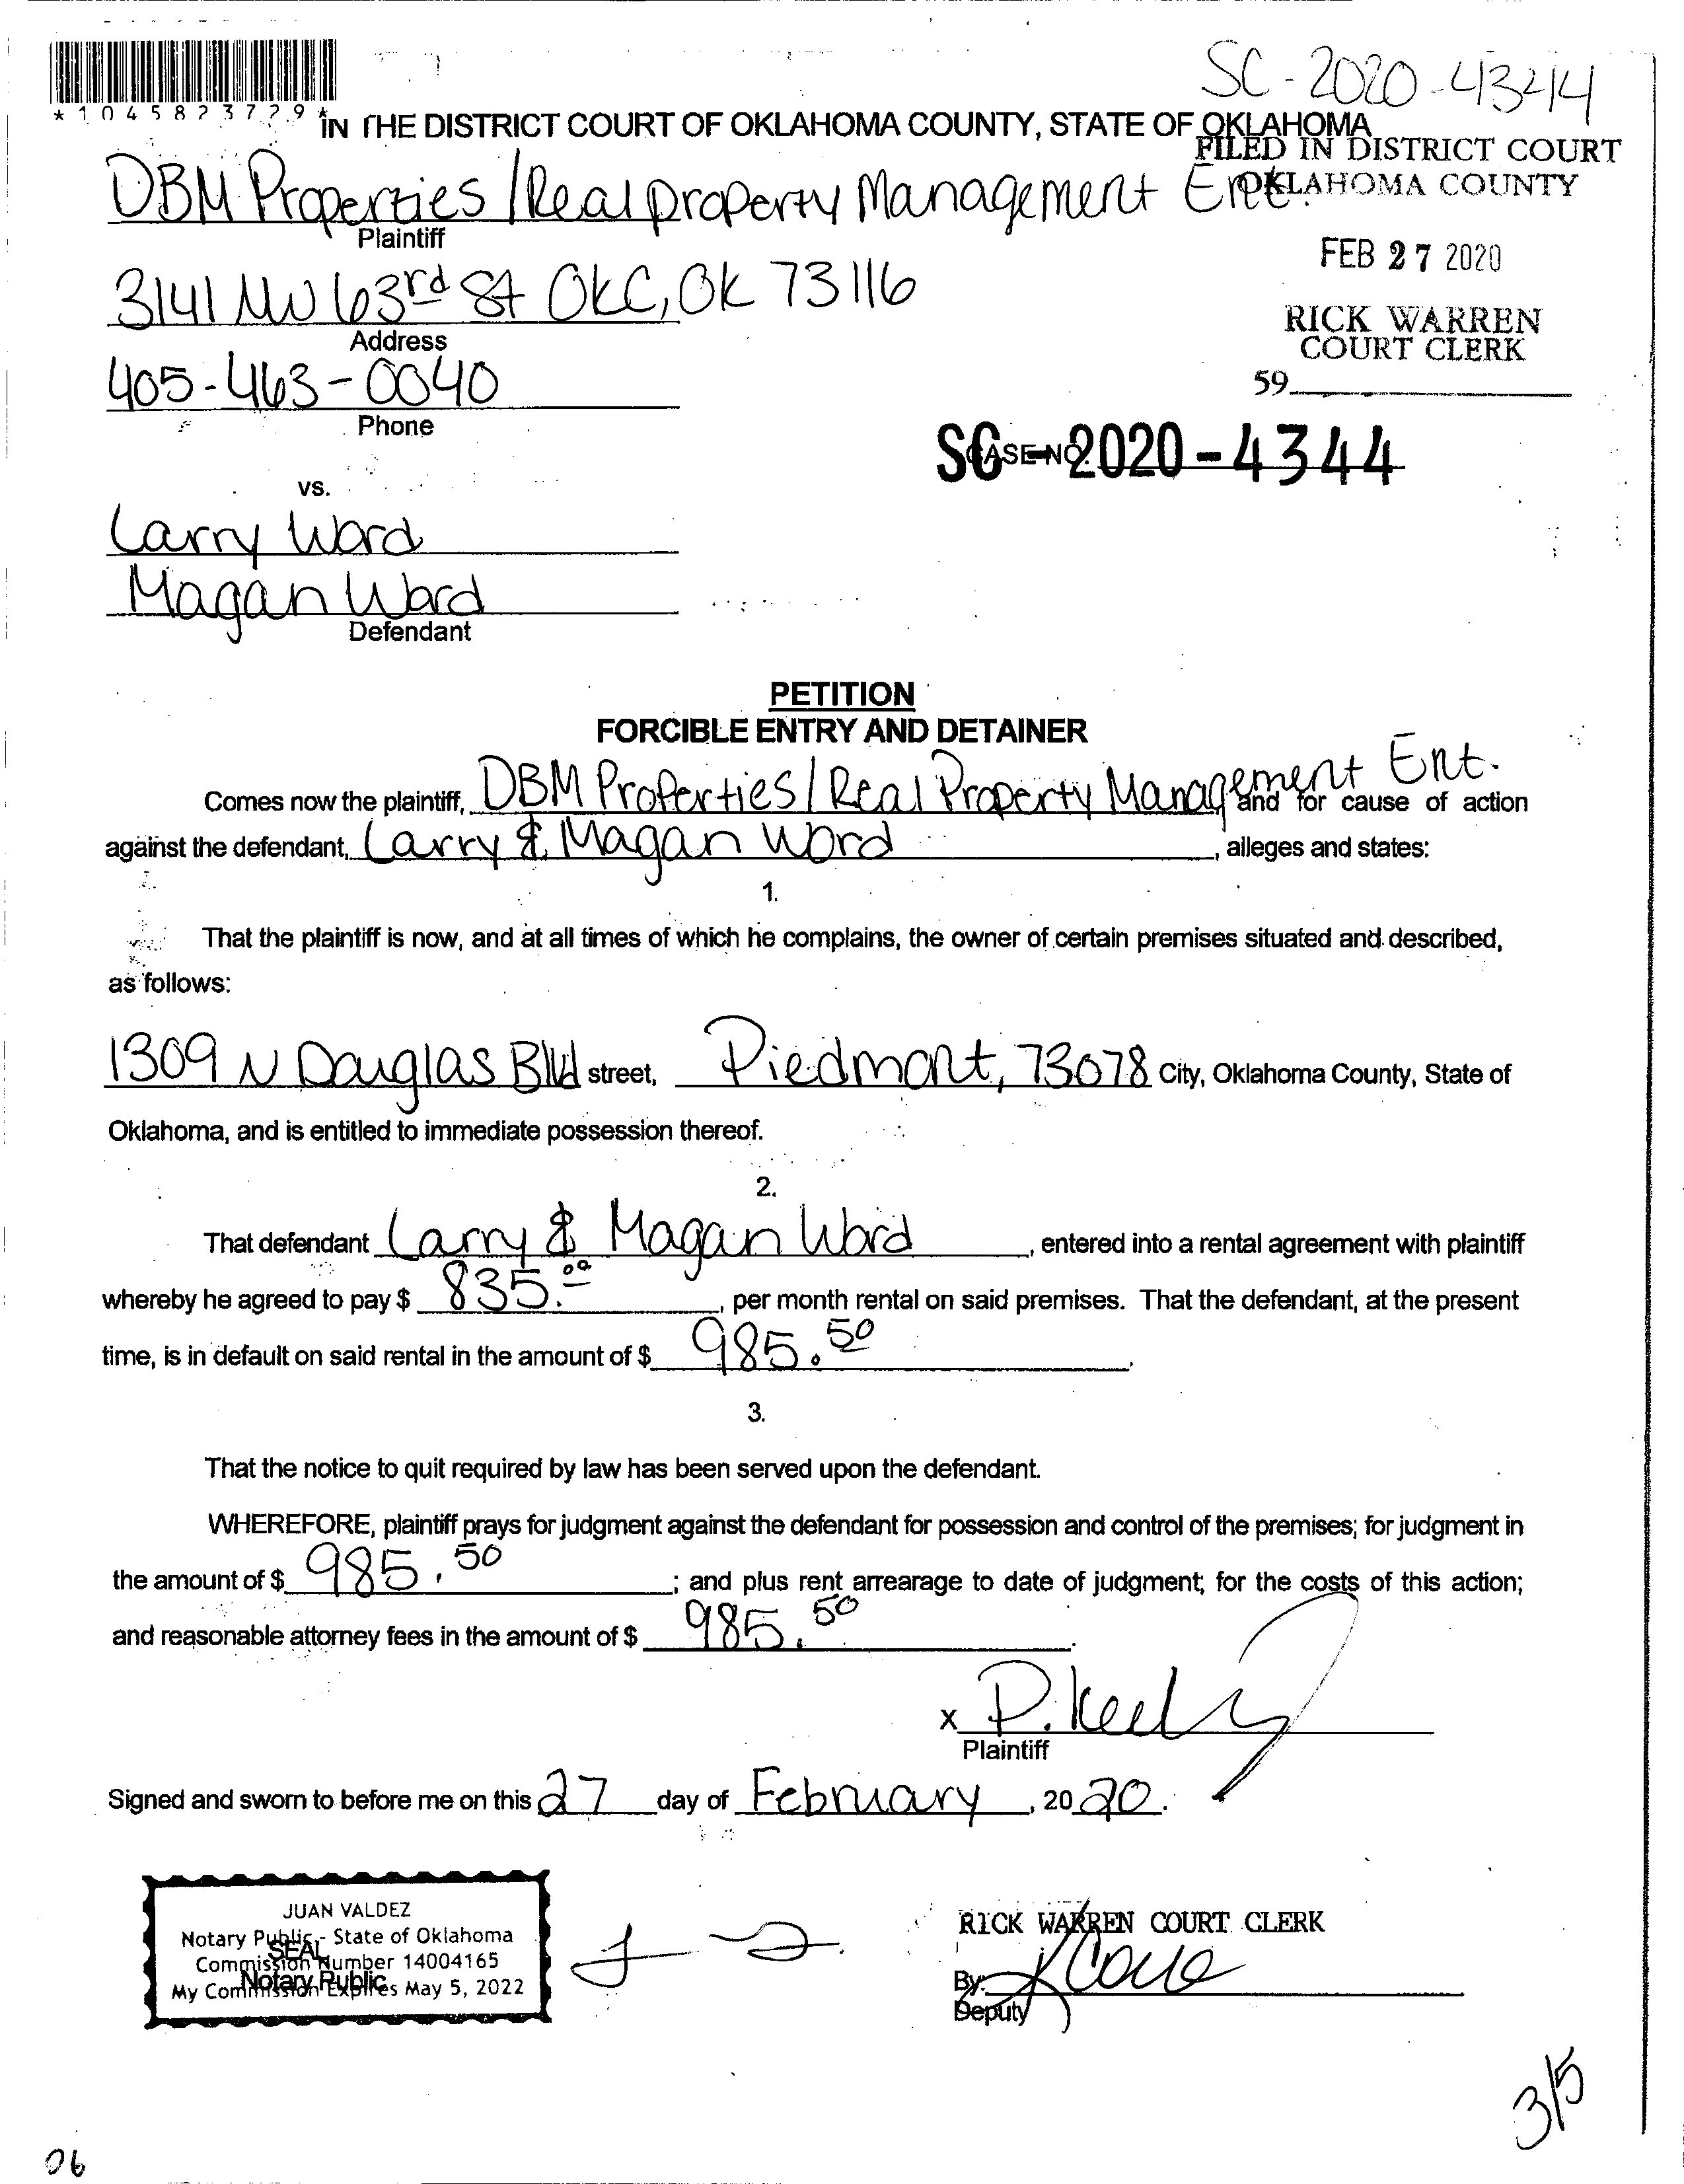 SC-2020-4344
*1045823729*
IN THE DISTRICT COURT OF OKLAHOMA COUNTY, STATE OF OKLAHOMA
FILED IN DISTRICT COURT
OKLAHOMA COUNTY
DBM Properties / Real property Management Ent.
Plaintiff
FEB 27 2020
3141 NW 63rd St OKC, OK 73116
Address
RICK WARREN
COURT CLERK
405-463-0040
59
Phone
CASE NO.
SC-2020-4344
vs.
Larry Ward
Magan Ward
Defendant
PETITION
FORCIBLE ENTRY AND DETAINER
Comes now the plaintiff, DBM Properties / Real Property Management Ent. and for cause of action
against the defendant, Larry & Magan Word, alleges and states:
1.
That the plaintiff is now, and at all times of which he complains, the owner of certain premises situated and described,
as follows:
1309 N Douglas Blvd street, Piedmont, 73078 City, Oklahoma County, State of
Oklahoma, and is entitled to immediate possession thereof.
2.
That defendant Larry & Magan Ward, entered into a rental agreement with plaintiff
whereby he agreed to pay $ 835.00, per month rental on said premises. That the defendant, at the present
time, is in default on said rental in the amount of $ 985.50.
3.
That the notice to quit required by law has been served upon the defendant.
WHEREFORE, plaintiff prays for judgment against the defendant for possession and control of the premises; for judgment in
the amount of $ 985.50; and plus rent arrearage to date of judgment; for the costs of this action;
and reasonable attorney fees in the amount of $ 985.50.
X P. Keely
Plaintiff
Signed and sworn to before me on this 27 day of February, 2020.
JUAN VALDEZ
Notary Public - State of Oklahoma
SEAL
Commission Number 14004165
Notary Public
My Commission Expires May 5, 2022
RICK WARREN COURT CLERK
By:
Deputy
3/5
06